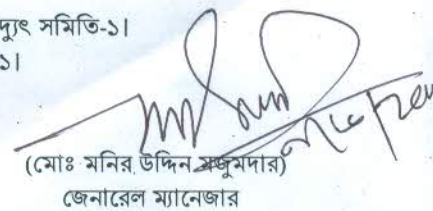 দ্যুৎ সমিতি-১।
১।
(মোঃ মনির উদ্দিন মজুমদার)
জেনারেল ম্যানেজার